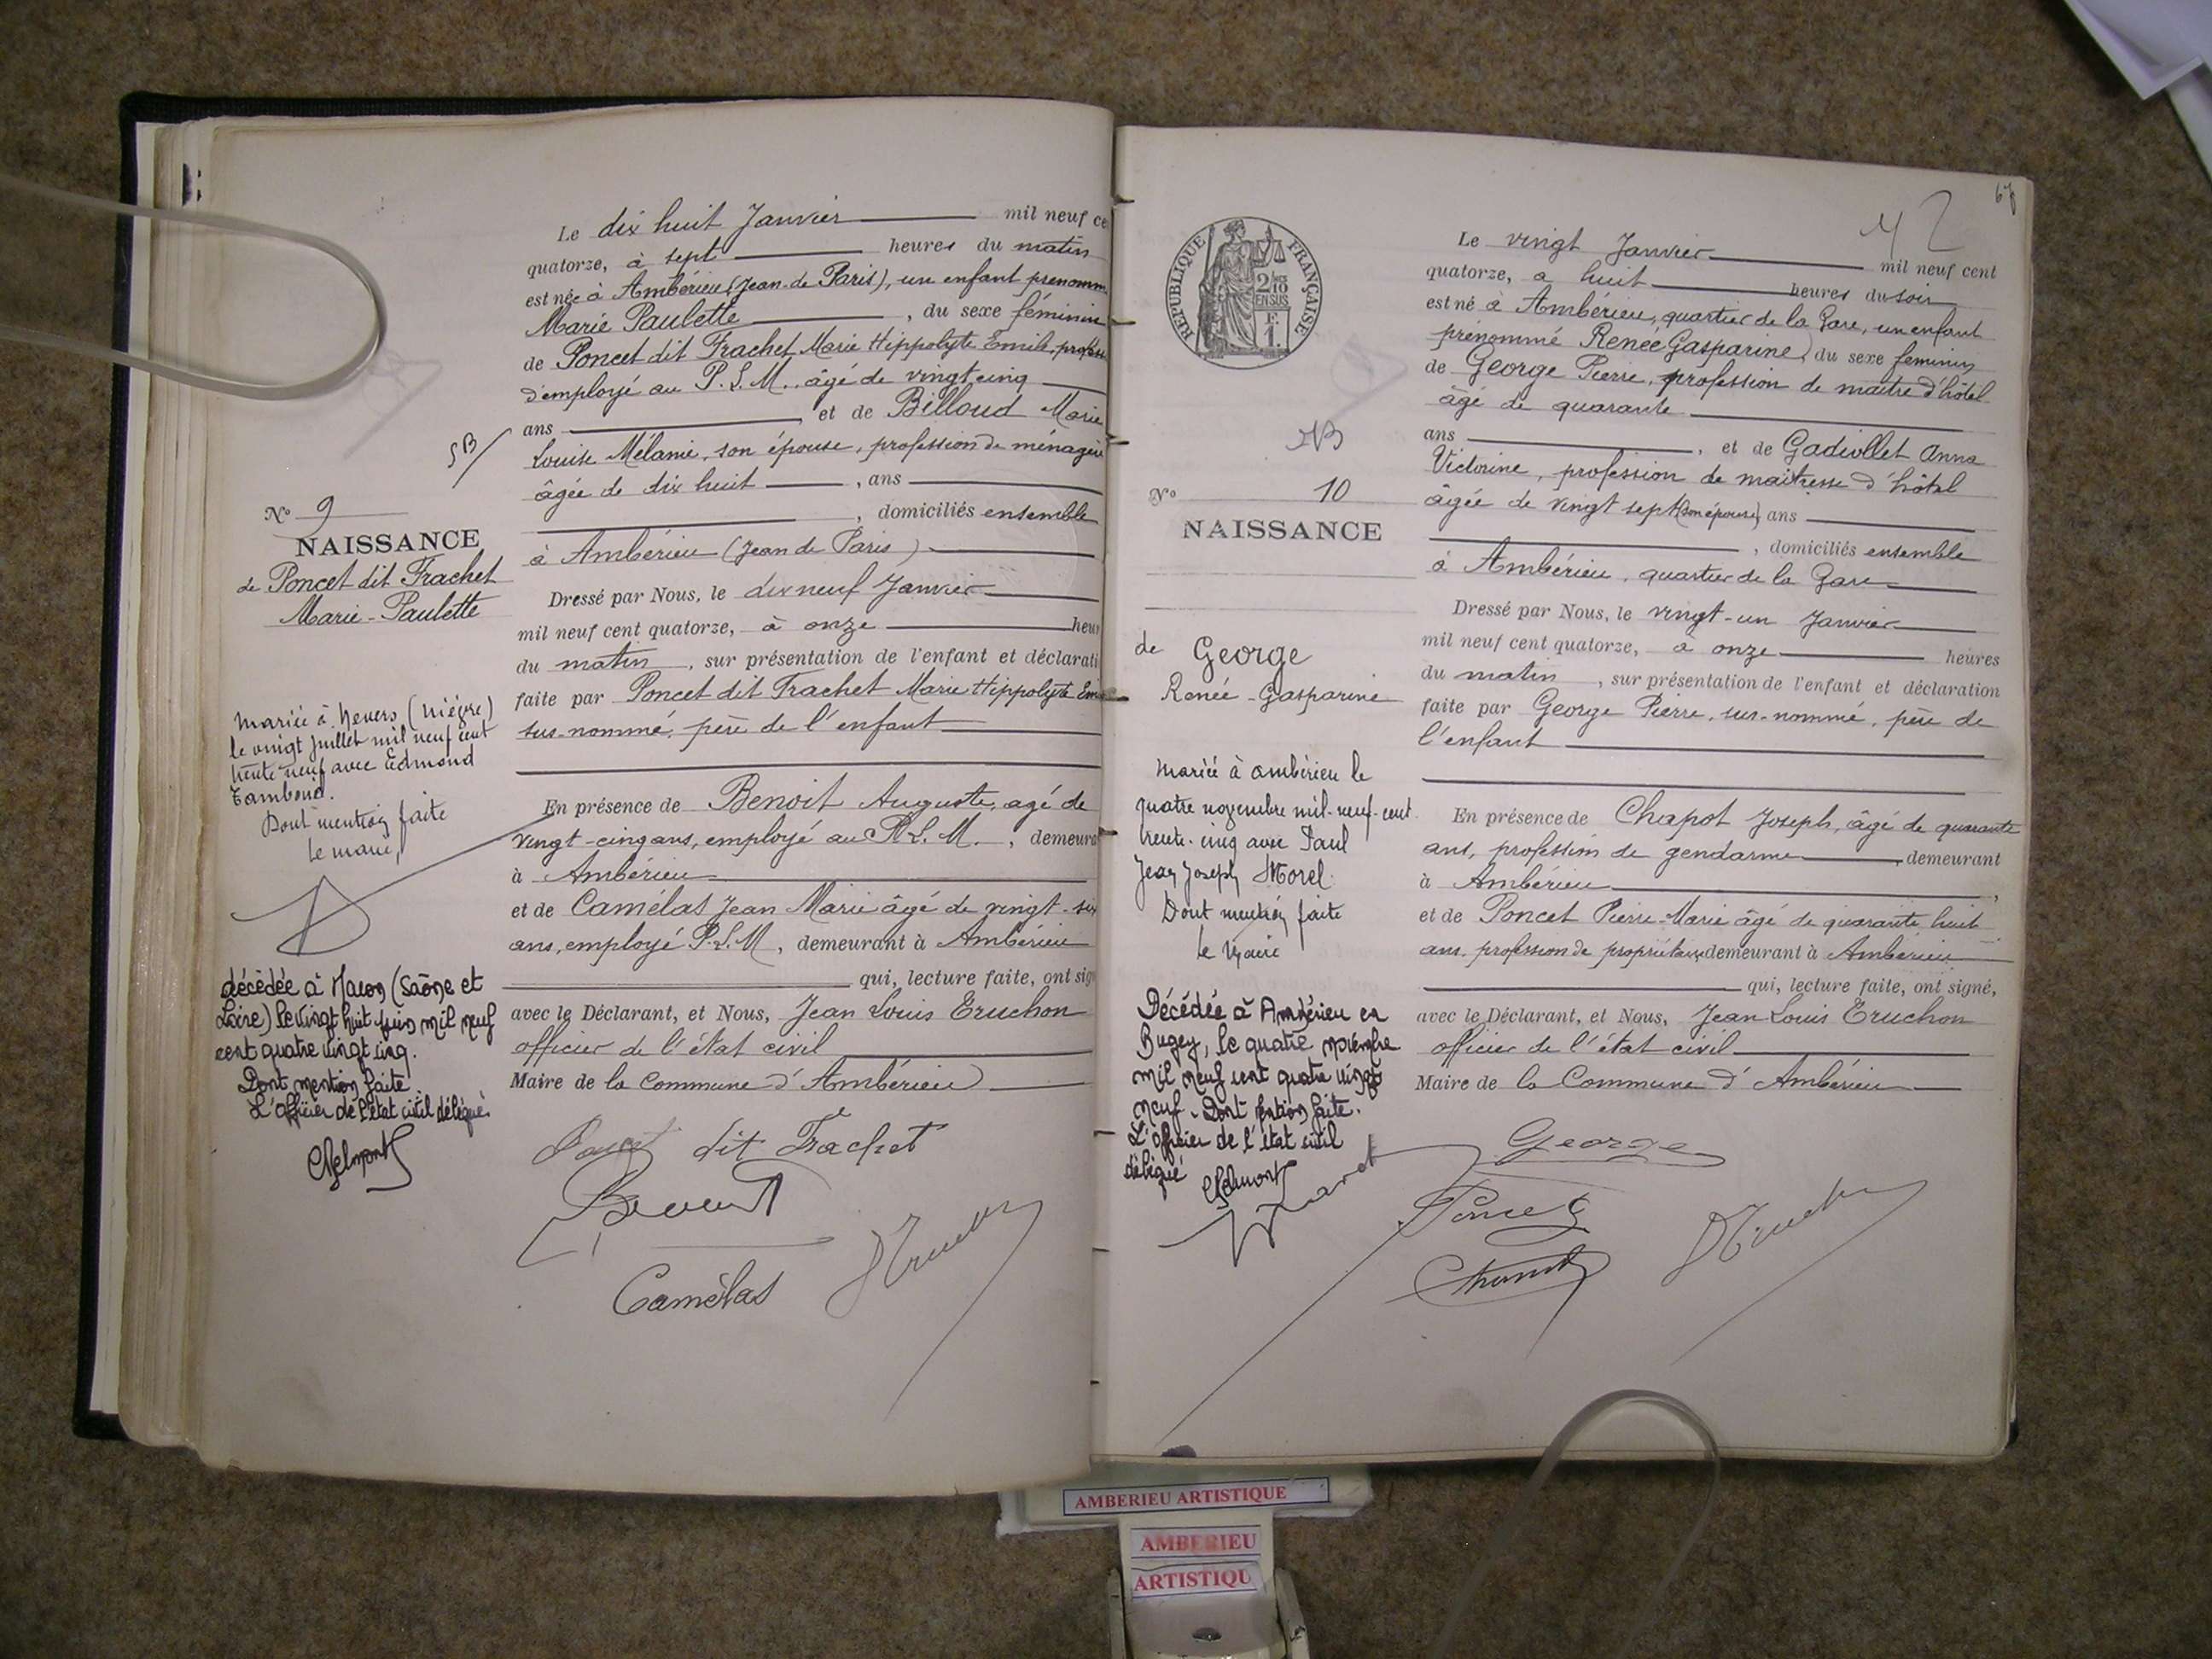 Le dix huit Janvier mil neuf ce
quatorze, à sept heures du matin
est née à Ambérieu (Jean de Paris), un enfant prénomm
Marie Paulette, du sexe féminin
de Poncet dit Frachet Marie Hippolyte Emile, profess
d'employé au P.L.M., âgé de vingt cinq
ans et de Billoud Marie
Louise Mélanie, son épouse, profession de ménagère
âgée de dix huit, ans
, domiciliés ensemble
à Ambérieu (Jean de Paris)
Dressé par Nous, le dix neuf Janvier
mil neuf cent quatorze, à onze heur
du matin, sur présentation de l'enfant et déclarati
faite par Poncet dit Frachet Marie Hippolyte Emi
sus-nommé, père de l'enfant
En présence de Benoit Auguste, agé de
vingt-cinq ans, employé au P.L.M., demeura
à Ambérieu
et de Camélas Jean Marie âgé de vingt-six
ans, employé P.L.M, demeurant à Ambérieu
qui, lecture faite, ont sign
avec le Déclarant, et Nous, Jean Louis Truchon
officier de l'état civil
Maire de la Commune d'Ambérieu
Poncet dit Frachet
Benoit
Camélas
No 9
NAISSANCE
de Poncet dit Frachet
Marie-Paulette
Mariée à Nevers (Nièvre)
le vingt juillet mil neuf cent
trente neuf avec Edmond
Dont mention faite
le maire,
décédée à Macon (Saône et
Loire) le vingt huit juin mil neuf
cent quatre vingt cinq.
Dont mention faite
L'officier de l'état civil délégué.
67
RÉPUBLIQUE FRANÇAISE
2/10
EN SUS
F.
1.
Le vingt Janvier mil neuf cent
quatorze, à huit heures du soir
est né à Ambérieu, quartier de la Gare, un enfant
prénommé Renée Gasparine, du sexe féminin
de George Pierre, profession de maître d'hôtel
âgé de quarante
ans, et de Gadiollet Anna
Victorine, profession de maîtresse d'hôtel
âgée de vingt sept (son épouse) ans
, domiciliés ensemble
à Ambérieu, quartier de la Gare
Dressé par Nous, le vingt-un Janvier
mil neuf cent quatorze, à onze heures
du matin, sur présentation de l'enfant et déclaration
faite par George Pierre, sus-nommé, père de
l'enfant
En présence de Chapot Joseph, âgé de quarante
ans, profession de gendarme, demeurant
à Ambérieu,
et de Poncet Pierre-Marie âgé de quarante huit
ans, profession de propriétaire demeurant à Ambérieu
qui, lecture faite, ont signé,
avec le Déclarant, et Nous, Jean Louis Truchon
officier de l'état civil
Maire de la Commune d'Ambérieu
George
Poncet
No 10
NAISSANCE
de George
Renée-Gasparine
Mariée à Ambérieu le
quatre novembre mil-neuf-cent
trente-cinq avec Paul
Jean Joseph Morel.
Dont mention faite
le Maire
Décédée à Ambérieu en
Bugey, le quatre novembre
mil neuf cent quatre vingt
neuf. Dont mention faite.
L'officier de l'état civil
délégué
AMBERIEU ARTISTIQUE
AMBERIEU
ARTISTIQU